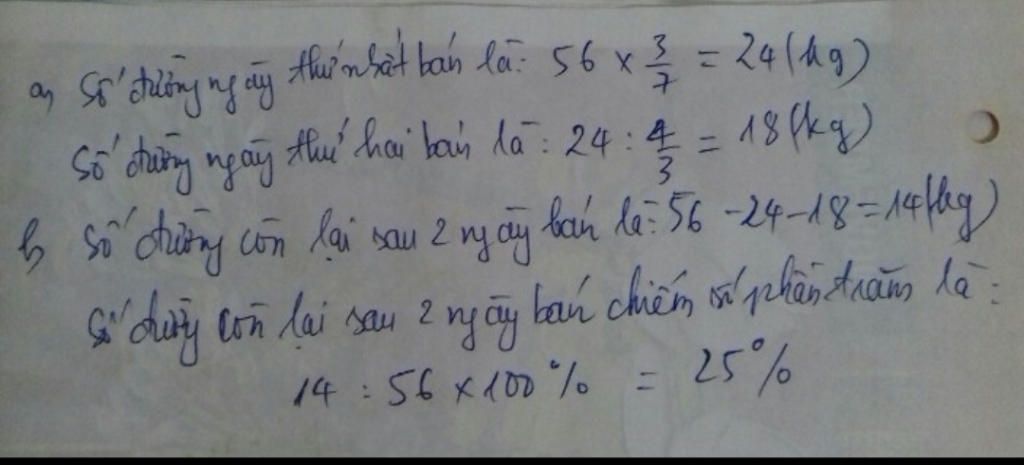 a, Số đường ngày thứ nhất bán là: 56 × 3/7 = 24 (kg)
Số đường ngày thứ hai bán là: 24 : 4/3 = 18 (kg)
b, Số đường còn lại sau 2 ngày bán là: 56 - 24 - 18 = 14 (kg)
Số đường còn lại sau 2 ngày bán chiếm số phần trăm là:
14 : 56 × 100% = 25%